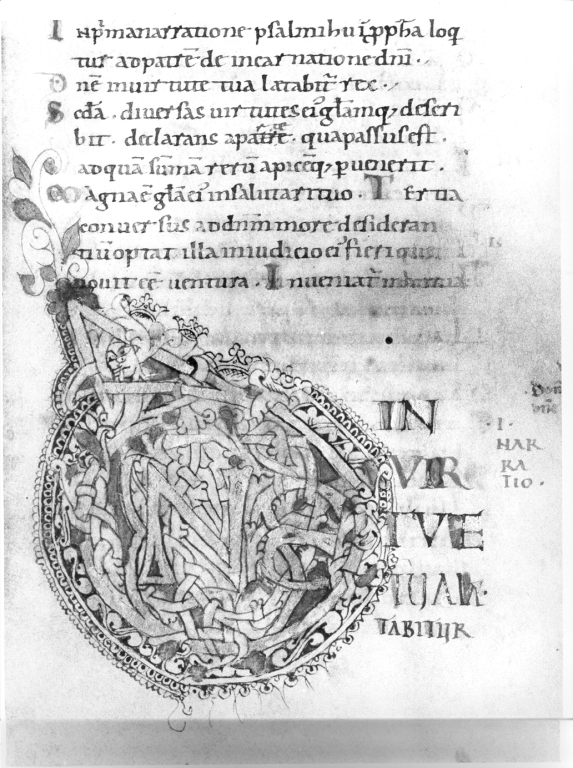 In p̄manarratione psalmi hui' ꝓpħa loq
tur ad patrē de incarnatione dn̄i .
Dnē in uirtute tua lætabit̄ rex .
Scd̄a . diuersas uirtutes ei' gl̄amq; descri
bit . declarans a patre . qua passus est .
ad quā sūmā rerū apicēq; ꝑuenerit .
Magna ē gl̄a ei' in salutari tuo . Tertia
conuersus ad dn̄m more desideran
tiū optat illa in iudicio ei' fieri quę
nouit eē uentura . Inueniat̄ manus
DNE
IN
VIR
TVTE
TUA LĘ
TABITUR
.I.
NAR
RA
TIO .